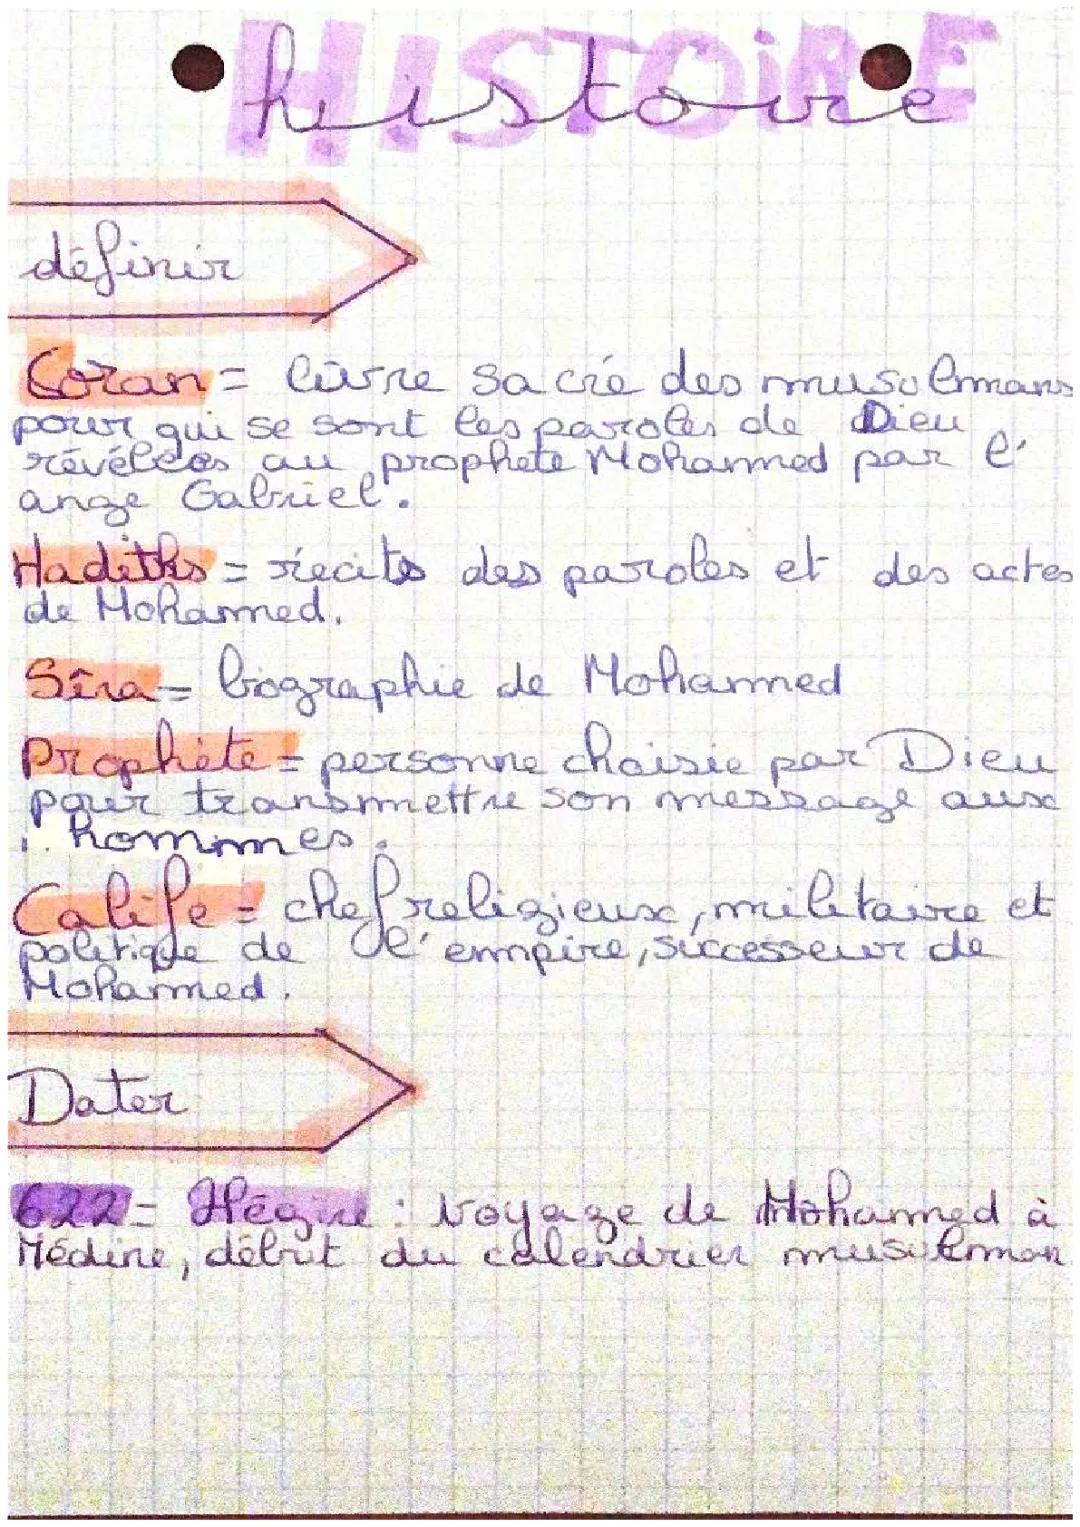 HISTOIRE
histoire
définir
Coran = livre sacré des musulmans
pour qui se sont les paroles de Dieu
révélées au prophète Mohammed par l'
ange Gabriel.
Hadiths = récits des paroles et des actes
de Mohammed.
Sîra = biographie de Mohammed
Prophète = personne choisie par Dieu
pour transmettre son message aux
hommes.
Calife = chef religieux, militaire et
politique de l'empire, successeur de
Mohammed.
Dater
622 = Hégire : voyage de Mohammed à
Médine, début du calendrier musulman